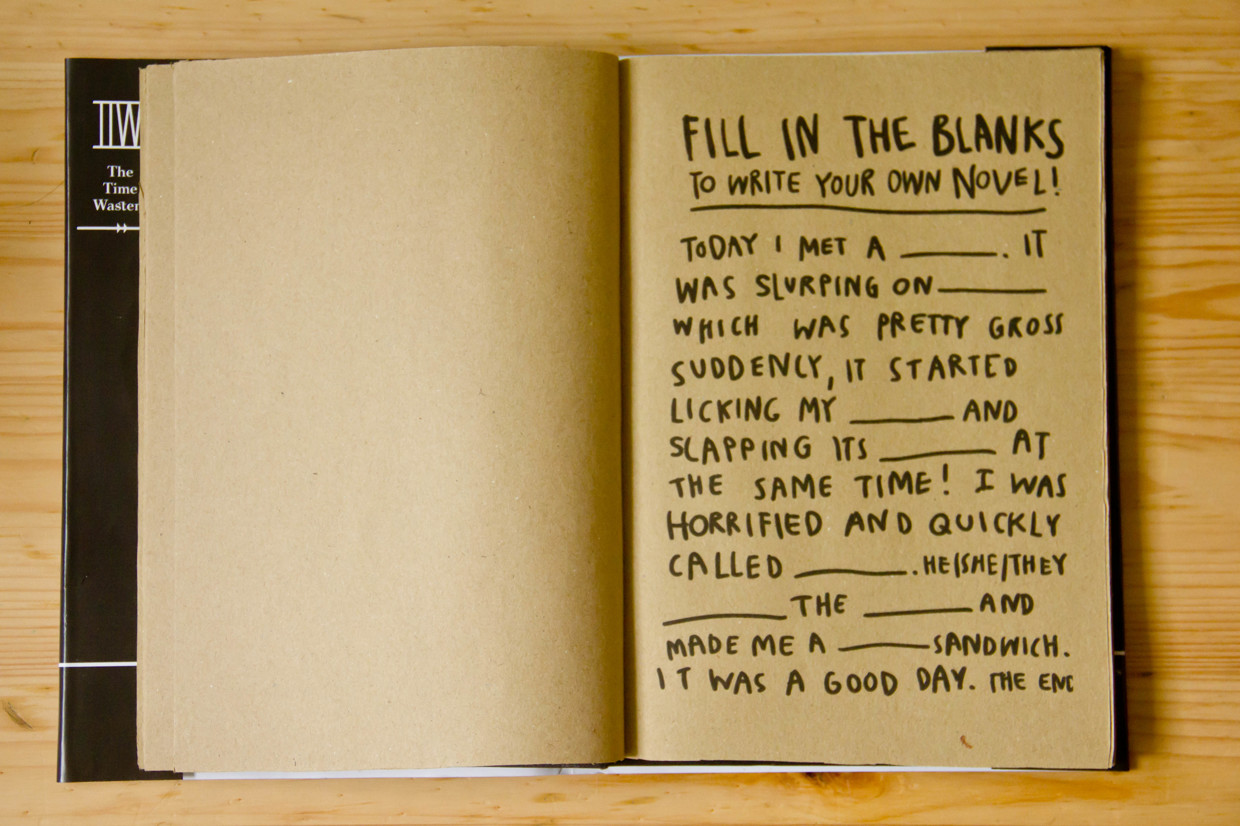 IIW
The
Time
Waster
FILL IN THE BLANKS
TO WRITE YOUR OWN NOVEL!
TODAY I MET A ______. IT
WAS SLURPING ON ______
WHICH WAS PRETTY GROSS
SUDDENLY, IT STARTED
LICKING MY ______ AND
SLAPPING ITS ______ AT
THE SAME TIME! I WAS
HORRIFIED AND QUICKLY
CALLED ______. HE/SHE/THEY
______ THE ______ AND
MADE ME A ______ SANDWICH.
IT WAS A GOOD DAY. THE END